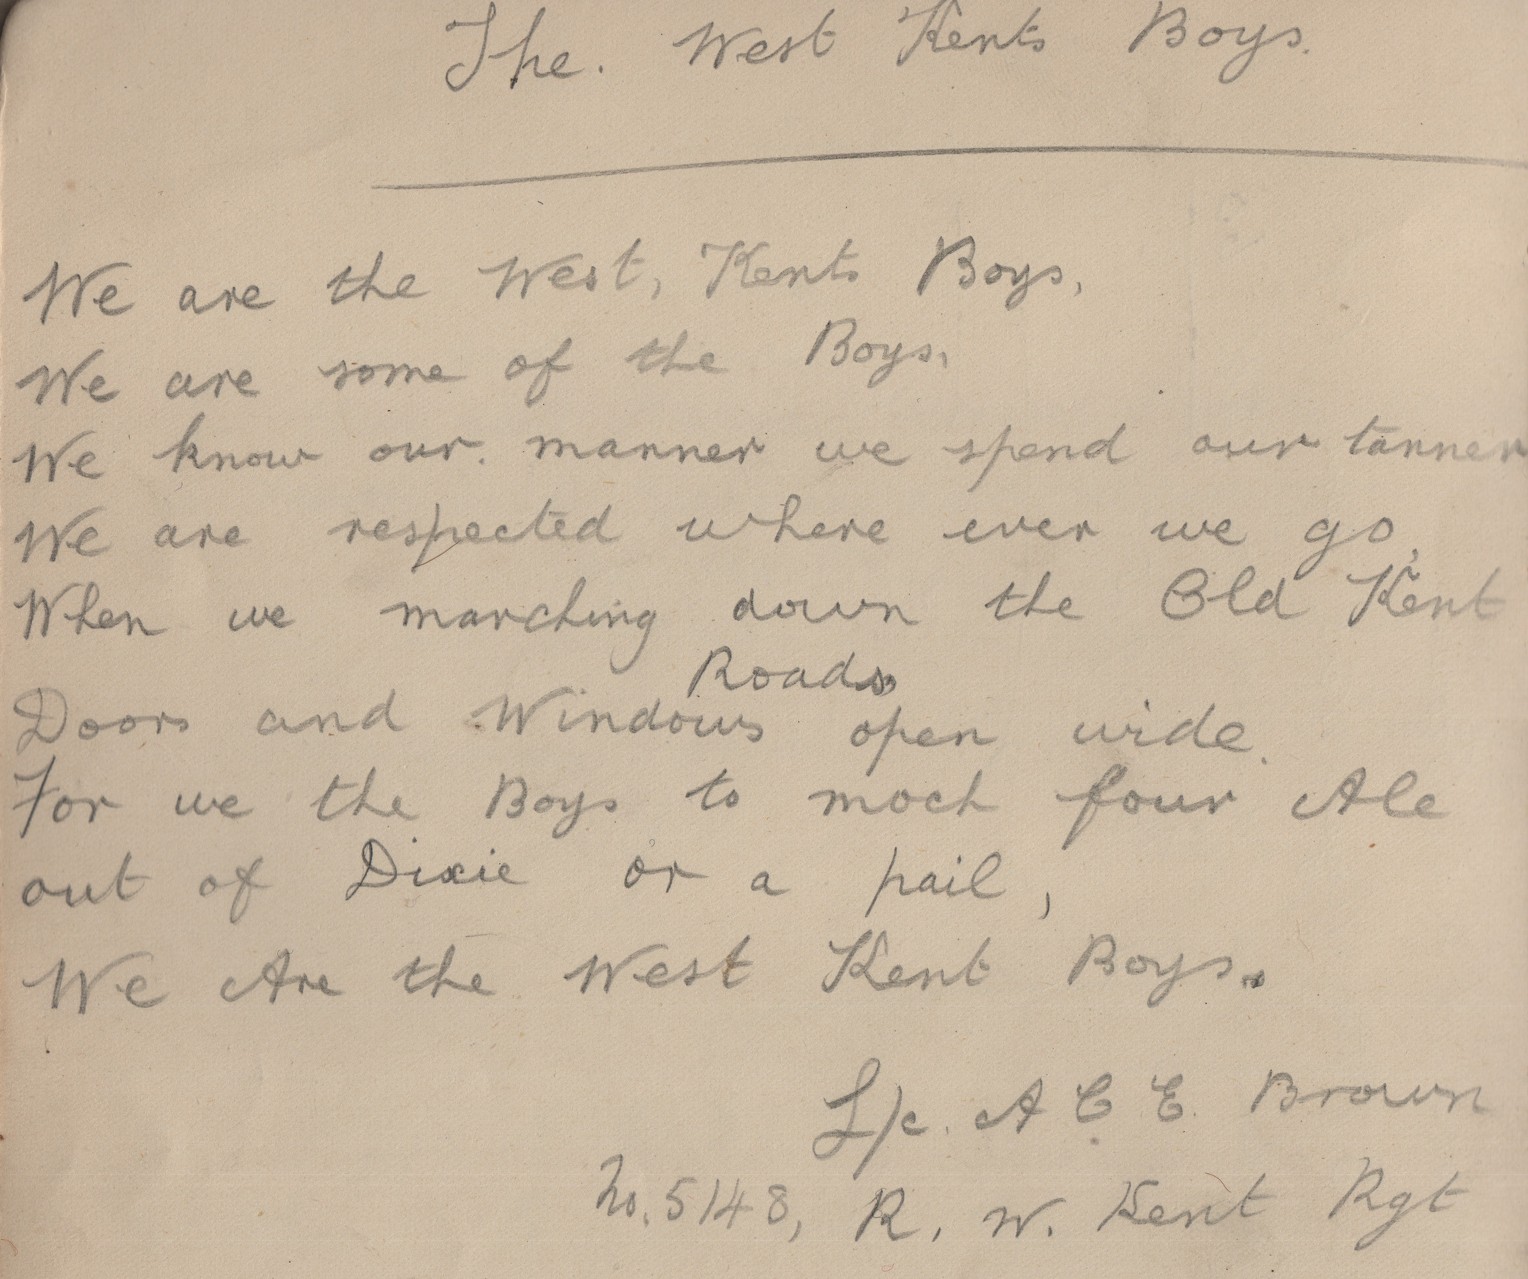 The. West Kents Boys.
We are the West, Kents Boys,
We are some of the Boys,
We know our. manner we spend our tanner
We are respected where ever we go,
When we marching down the Old Kent
Roads
Doors and Windows open wide.
For we the Boys to moch four Ale
out of Dixie or a pail,
We Are the West Kent Boys.
L/c. A C E. Brown
No. 5148, R. W. Kent Rgt